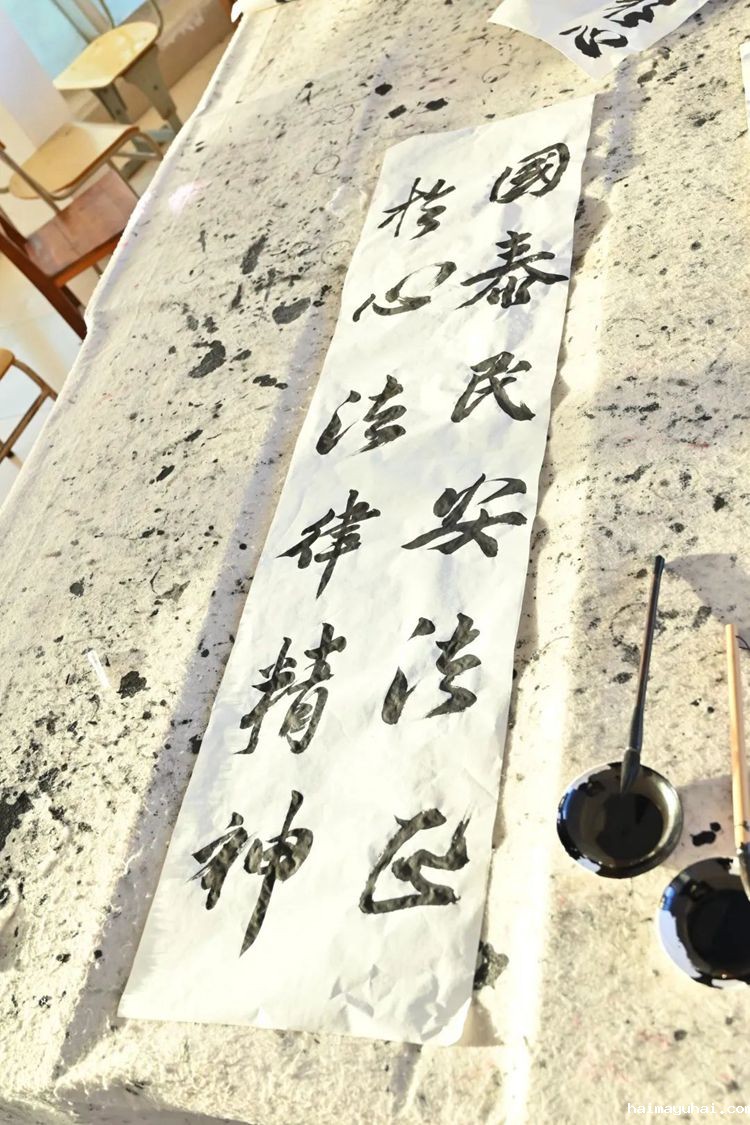 國泰民安法正
於心法律精神
心
haimaguhai.com